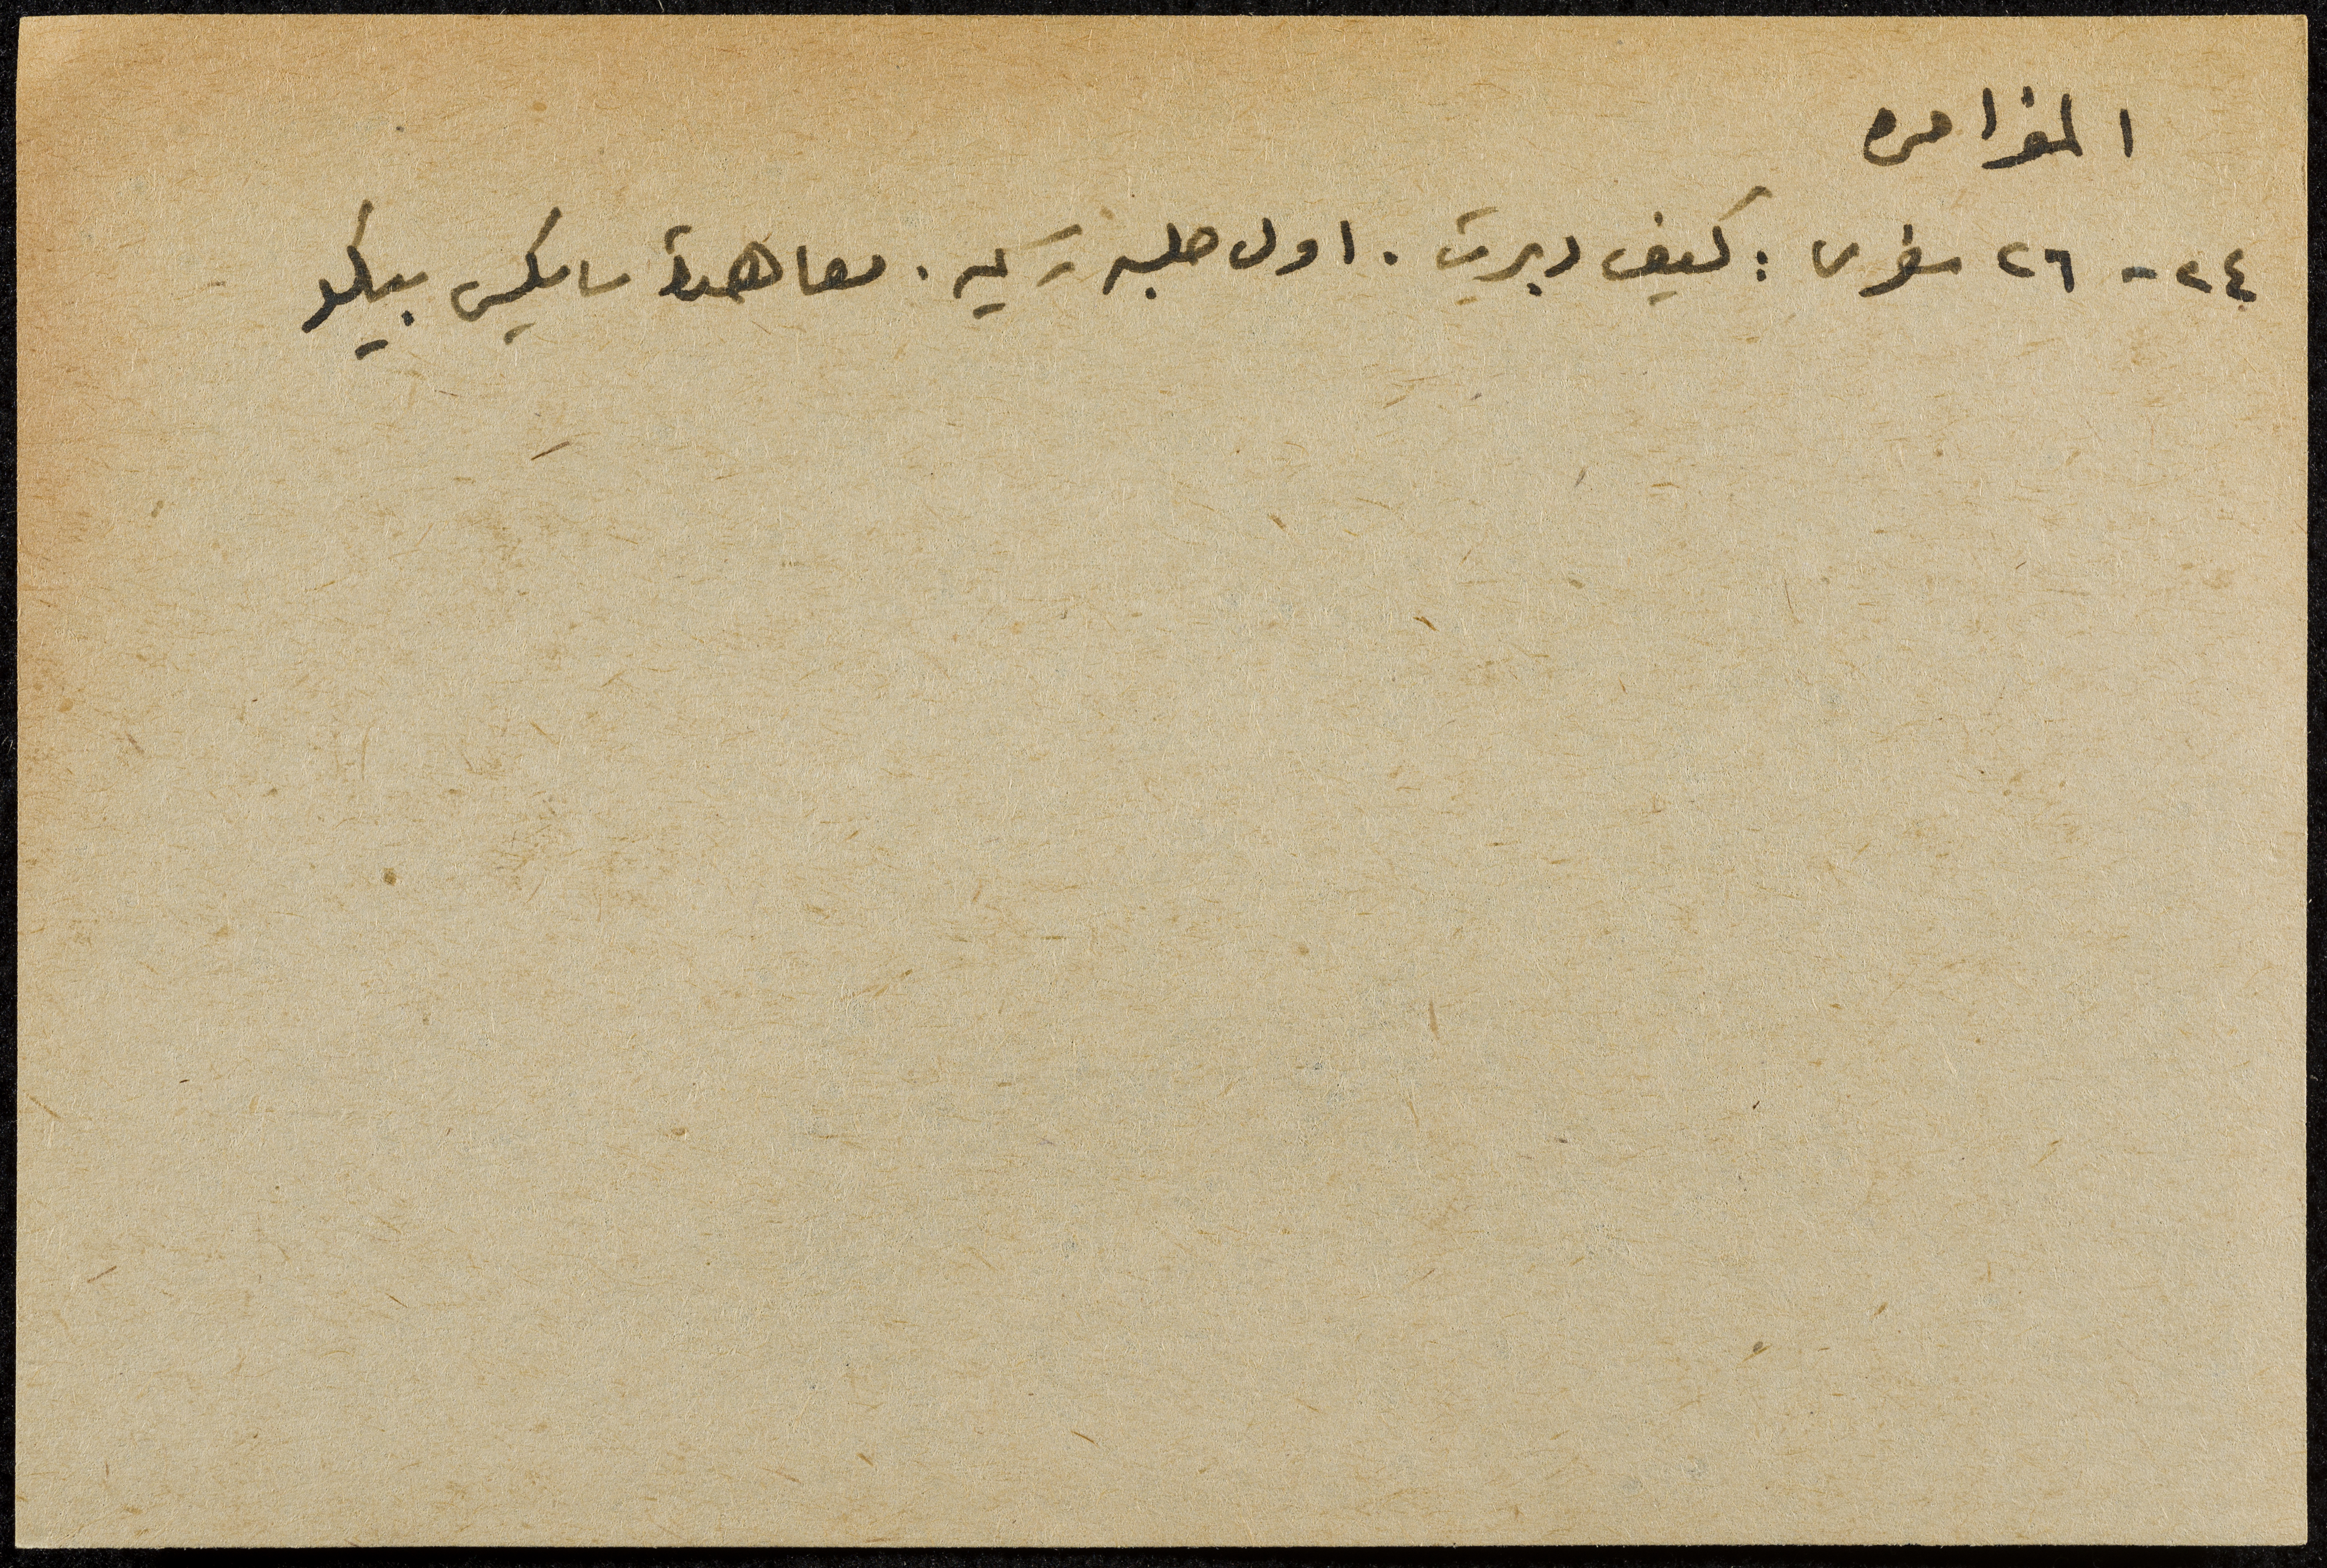 المغرا مره
٢٤ - ٢٦ سفرى : كيف دبرت . اول جلسه تركيه . معاهدة سايكس بيكو